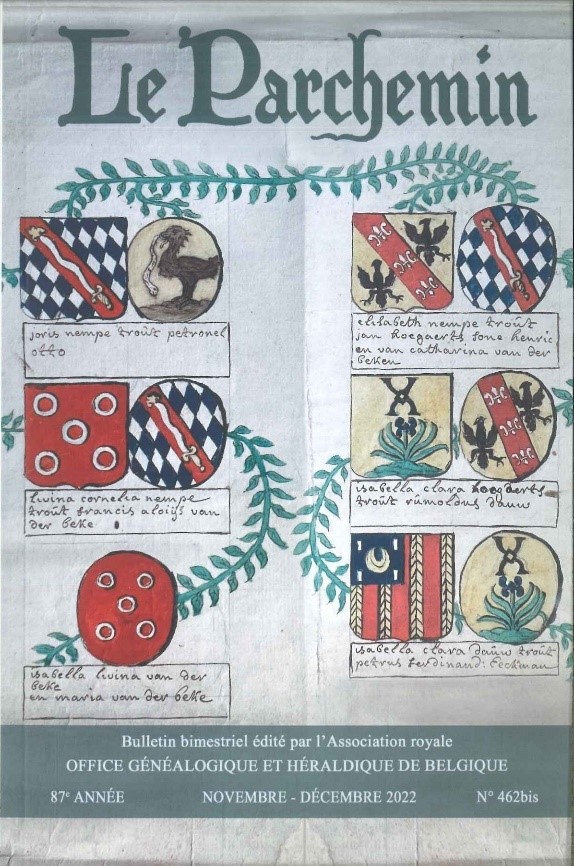 Le Parchemin
joris nempe troût petronel
otto
elisabeth nempe troût
jan hoegaerts sone henric
en van catharina van der
beken
livina cornelia nempe
troût francis aloijs van
der beke
isabella clara hoegaerts
troût rûmoldus daûw
isabella livina van der
beke
en maria van der beke
isabella clara daûw troût
petrus ferdinand: Eeckman
Bulletin bimestriel édité par l'Association royale
OFFICE GÉNÉALOGIQUE ET HÉRALDIQUE DE BELGIQUE
87e ANNÉE NOVEMBRE - DÉCEMBRE 2022 N° 462bis